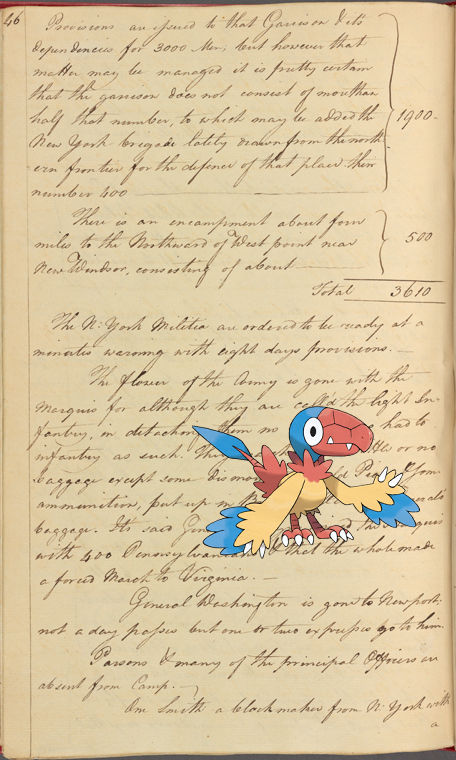 46
Provisions are issued to that Garrison & its
dependencies for 3000 Men, but however that
matter may be managed it is pretty certain
that the garrison does not consist of more than
half that number, to which may be added the
New York brigade lately drawn from the north-
ern frontier for the defence of that place then
number 400
1900-
There is an encampment about four
miles to the Northward of West point near
New Windsor, consisting of about
500
Total 3610
The N: York Militia are ordered to be ready at a
minutes warning with eight days provisions.
The flower of the Army is gone with the
Marquis for although they are called the light In-
fantry, in detaching them no had to
infantry as such. or no
baggage except some
ammunition, put up in
baggage. Its said Gen
with 400 Pennsylvanians & that the whole made
a forced March to Virginia. -
General Washington is gone to Newport;
not a day passes but one or two expresses go to him.
Parsons & many of the principal Officers are
absent from Camp.
One Smith a Clockmaker from N: York with
a